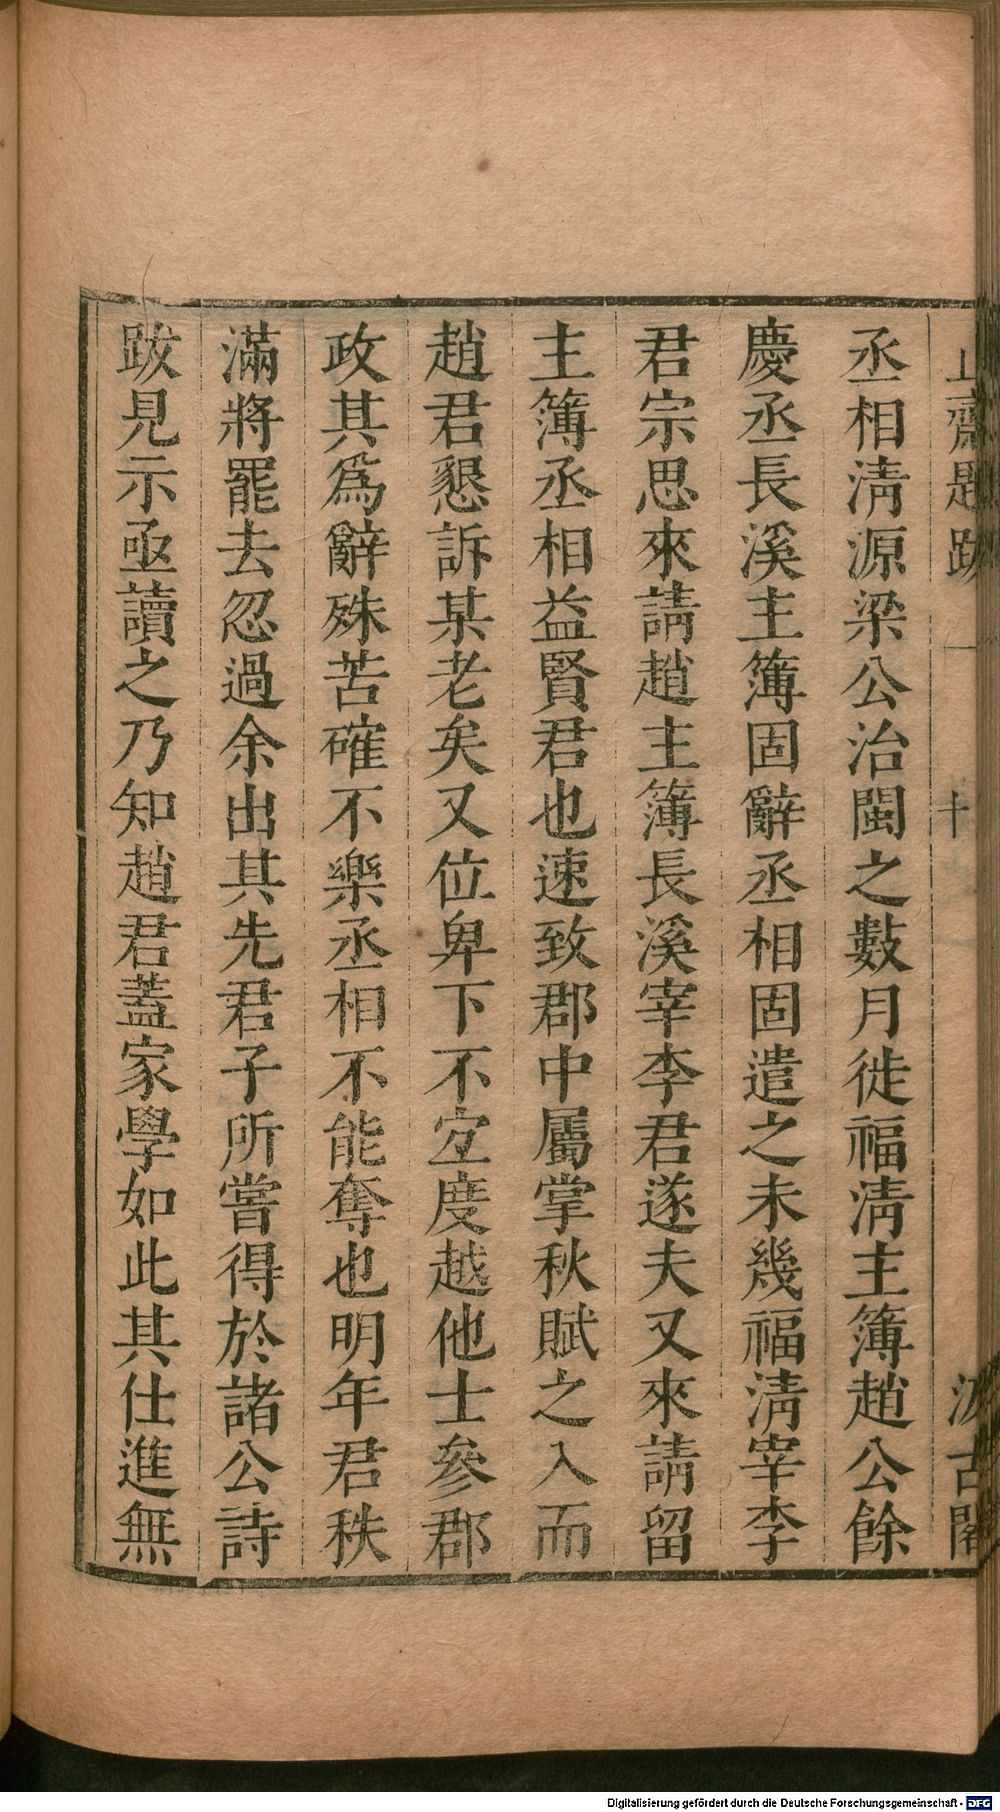 止齋題跋 一 十 汲古閣
丞相淸源梁公治閩之數月徙福淸主簿趙公餘
慶丞長溪主簿固辭丞相固遣之未幾福淸宰李
君宗思來請趙主簿長溪宰李君遂夫又來請留
主簿丞相益賢君也速致郡中屬掌秋賦之入而
趙君懇訴某老矣又位卑下不宐度越他士參郡
政其爲辭殊苦確不樂丞相不能奪也明年君秩
滿將罷去忽過余出其先君子所嘗得於諸公詩
跋見示亟讀之乃知趙君蓋家學如此其仕進無
Digitalisierung gefördert durch die Deutsche Forschungsgemeinschaft - DFG